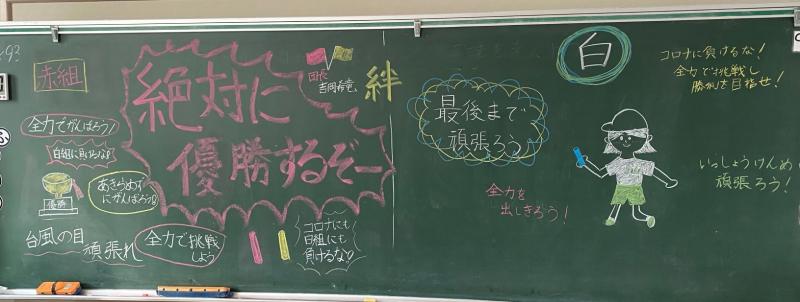 赤組
絶対に
優勝するぞー
団長
吉岡希竜
絆
全力でがんばろう!
白組に負けるな!
優勝
あきらめず
にがんばろう!
台風の目
頑張れ
全力で挑戦
しよう
コロナにも
白組にも
負けるな!
白
最後まで
頑張ろう
全力を
出しきろう!
コロナに負けるな!
全力で挑戦し
勝利を目指せ!
いっしょうけんめい
頑張ろう!